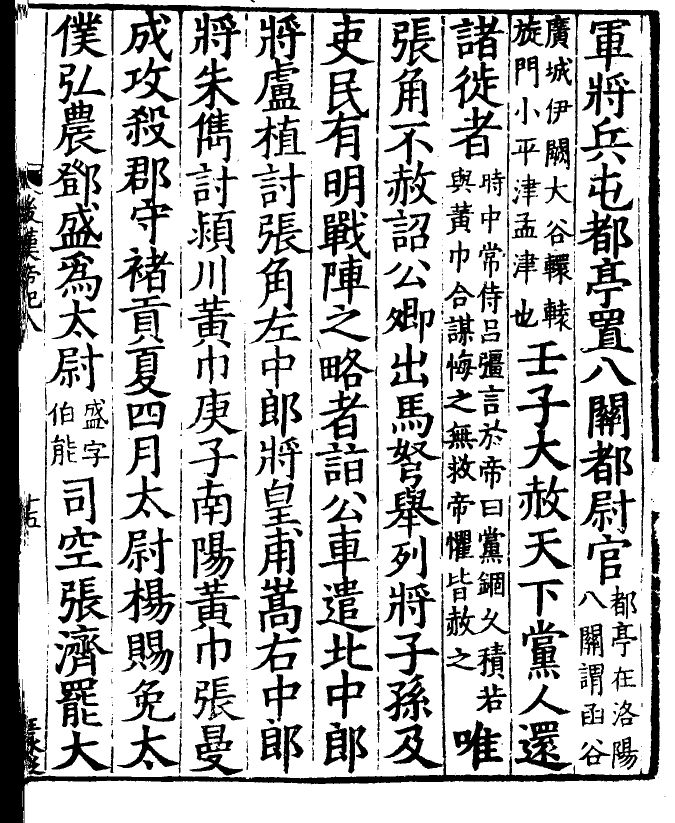 軍將兵屯都亭置八關都尉官都亭在洛陽八關謂函谷
廣城伊闕大谷轘轅旋門小平津孟津也壬子大赦天下黨人還
諸徙者時中常侍呂彊言於帝曰黨錮久積若與黃巾合謀悔之無救帝懼皆赦之唯
張角不赦詔公卿出馬弩舉列將子孫及
吏民有明戰陣之略者詣公車遣北中郎
將盧植討張角左中郎將皇甫嵩右中郎
將朱儁討潁川黃巾庚子南陽黃巾張曼
成攻殺郡守褚貢夏四月太尉楊賜免太
僕弘農鄧盛為太尉盛字伯能司空張濟罷大
後漢帝紀八
十五